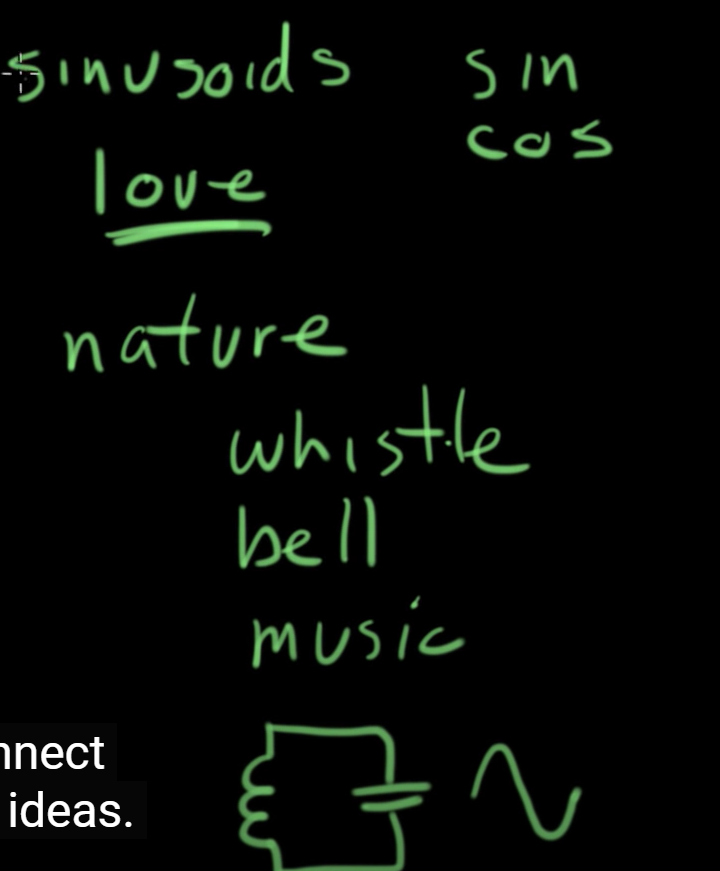 sinusoids sin
cos
love
nature
whistle
bell
music
ideas.